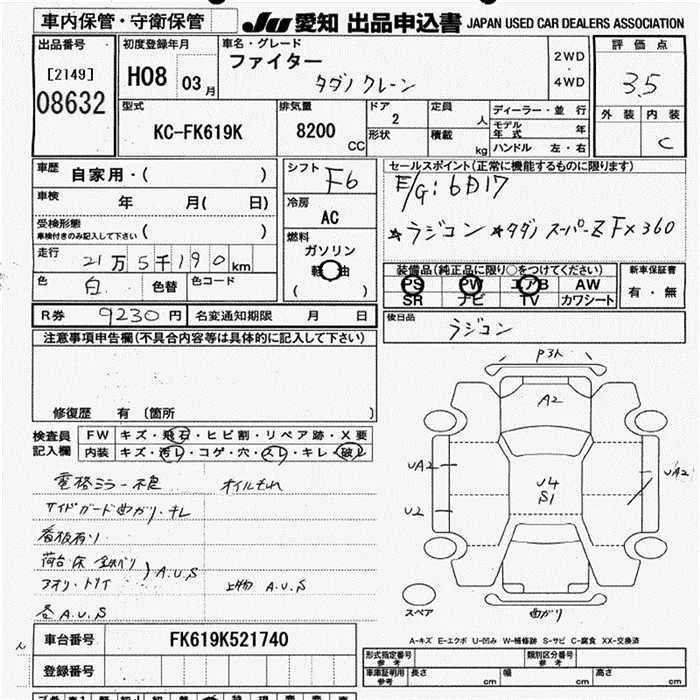 車内保管・守衛保管
JU 愛知 出品申込書 JAPAN USED CAR DEALERS ASSOCIATION
出品番号
[2149]
08632
初度登録年月
H08 03月
車名・グレード
ファイター
タダノ クレーン
2WD
・
4WD
評価点
3.5
外装 内装
C
型式
KC-FK619K
排気量
8200 CC
ドア
2
形状
定員
人
積載
kg
ディーラー・並行
モデル年式 年
ハンドル 左・右
車歴 自家用・( )
車検 年 月( 日)
受検形態
車検付きのみ記入して下さい ( )
走行 21万5千190km
色 白 色替 色コード
シフト F6
冷房 AC
燃料
ガソリン
軽油
( )
セールスポイント(正常に機能するものに限ります)
E/G: 6D17
★ラジコン ★タダノ スーパーZ FX360
装備品(純正品に限り○をつけてください)
PS PW エアB AW
SR ナビ TV カワシート
新車保証書
有・無
R券 9230円 名変通知期限 月 日
後日品
ラジコン
注意事項申告欄(不具合内容等は具体的に記入して下さい)
修復歴 有 〔箇所 〕
検査員記入欄
FW キズ・飛石・ヒビ割・リペア跡・X要
内装 キズ・汚レ・コゲ・穴・スレ・キレ・破レ
電格ミラー不良 オイルもれ
サイドガード曲がり・キレ
看板有り
荷台・床 鉄バリ
アオリ・トリイ ) A.U.S 上物 A.U.S
各 A.U.S
P3人
A2
UA2
U4
S1
UA2
U2
スペア
曲がり
A-キズ E-エクボ U-凹み W-補修跡 S-サビ C-腐食 XX-交換済
車台番号 FK619K521740
登録番号
形式指定番号 参考
類別区分番号 参考
車庫証明用 参考
長さ cm 幅 cm 高さ cm